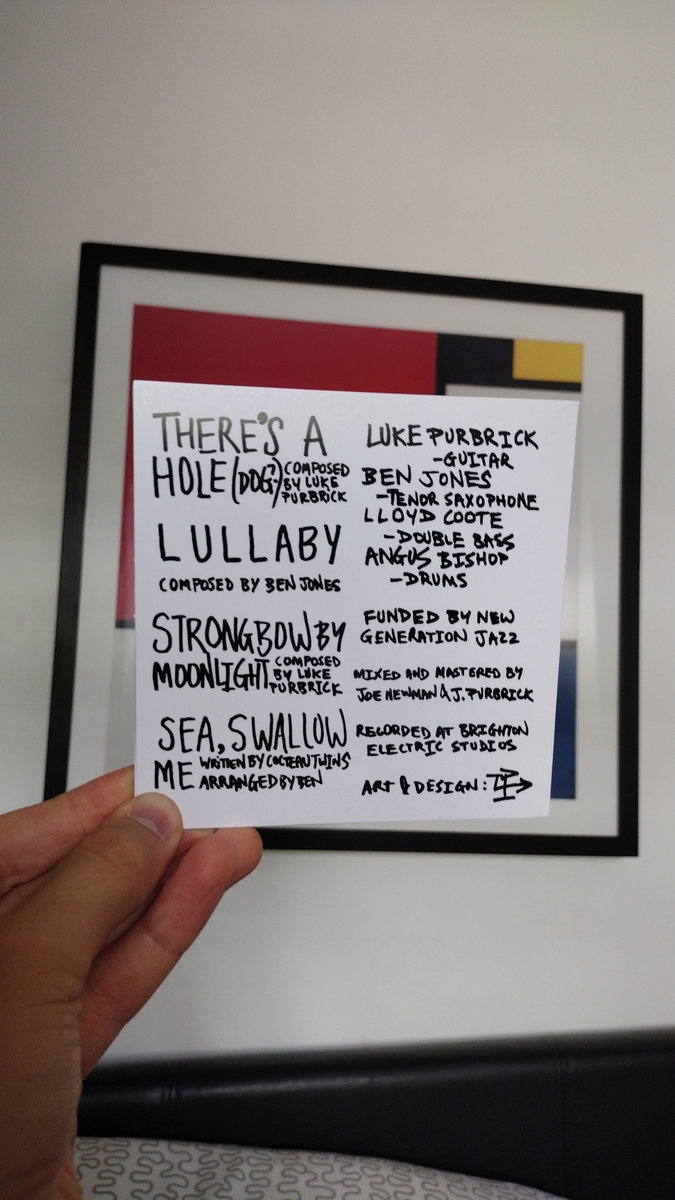 THERE'S A
HOLE (DOG?) COMPOSED
BY LUKE
PURBRICK
LULLABY
COMPOSED BY BEN JONES
STRONGBOW BY
MOONLIGHT COMPOSED
BY LUKE
PURBRICK
SEA, SWALLOW
ME WRITTEN BY COCTEAU TWINS
ARRANGED BY BEN
LUKE PURBRICK
-GUITAR
BEN JONES
-TENOR SAXOPHONE
LLOYD COOTE
-DOUBLE BASS
ANGUS BISHOP
-DRUMS
FUNDED BY NEW
GENERATION JAZZ
MIXED AND MASTERED BY
JOE NEWMAN & J. PURBRICK
RECORDED AT BRIGHTON
ELECTRIC STUDIOS
ART & DESIGN: